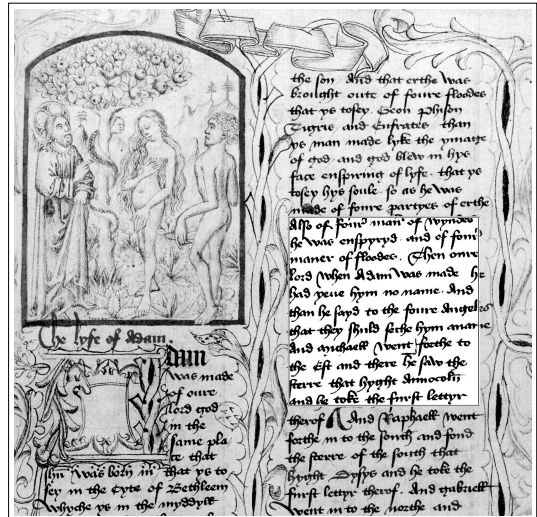 The lyfe of Adam
Adam
was made
of oure
lord god
in the
same pla
ce that
Ihu was born in that ys to
sey in the Cyte of Bethleem
whyche ys in the myddyll
the son And that erthe was
brought oute of foure floodes
that ys to sey. Geon Phison
Tigris and Eufrates than
ys man made lyke the ymage
of god and god blew in hys
face enspiring of lyfe. that ys
to sey hys soule. so as he was
made of foure partyes of erthe
Also of four man of wyndes
he was enspyryd and of four
maner of floodes. Then oure
lord when Adam was made he
had yeue hym no name. And
than he sayd to the foure Angelos
that they shuld seche hym aname
And michaell went forthe to
the Est and there he saw the
sterre that hyght Annocolin
and he toke the furst lettyr
therof And Raphaell went
forthe in to the south and fond
the sterre of the south that
hyght Dysys and he toke the
furst lettyr therof. And gabriell
went in to the northe and